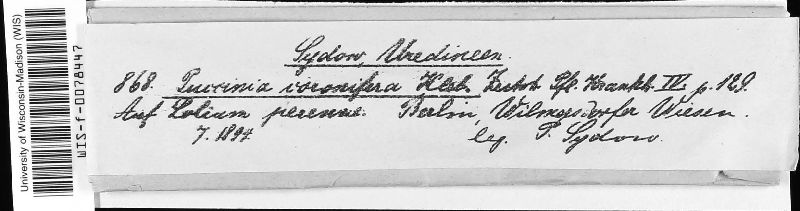 University of Wisconsin-Madison (WIS)
WIS-f-0078447
Sydow Uredineen.
868. Puccinia coronifera Kleb. Zeitschr. Pfl. Krankh. IV. p. 129.
Auf Lolium perenne. Berlin, Wilmersdorfer Wiesen.
7. 1894 leg. P. Sydow.